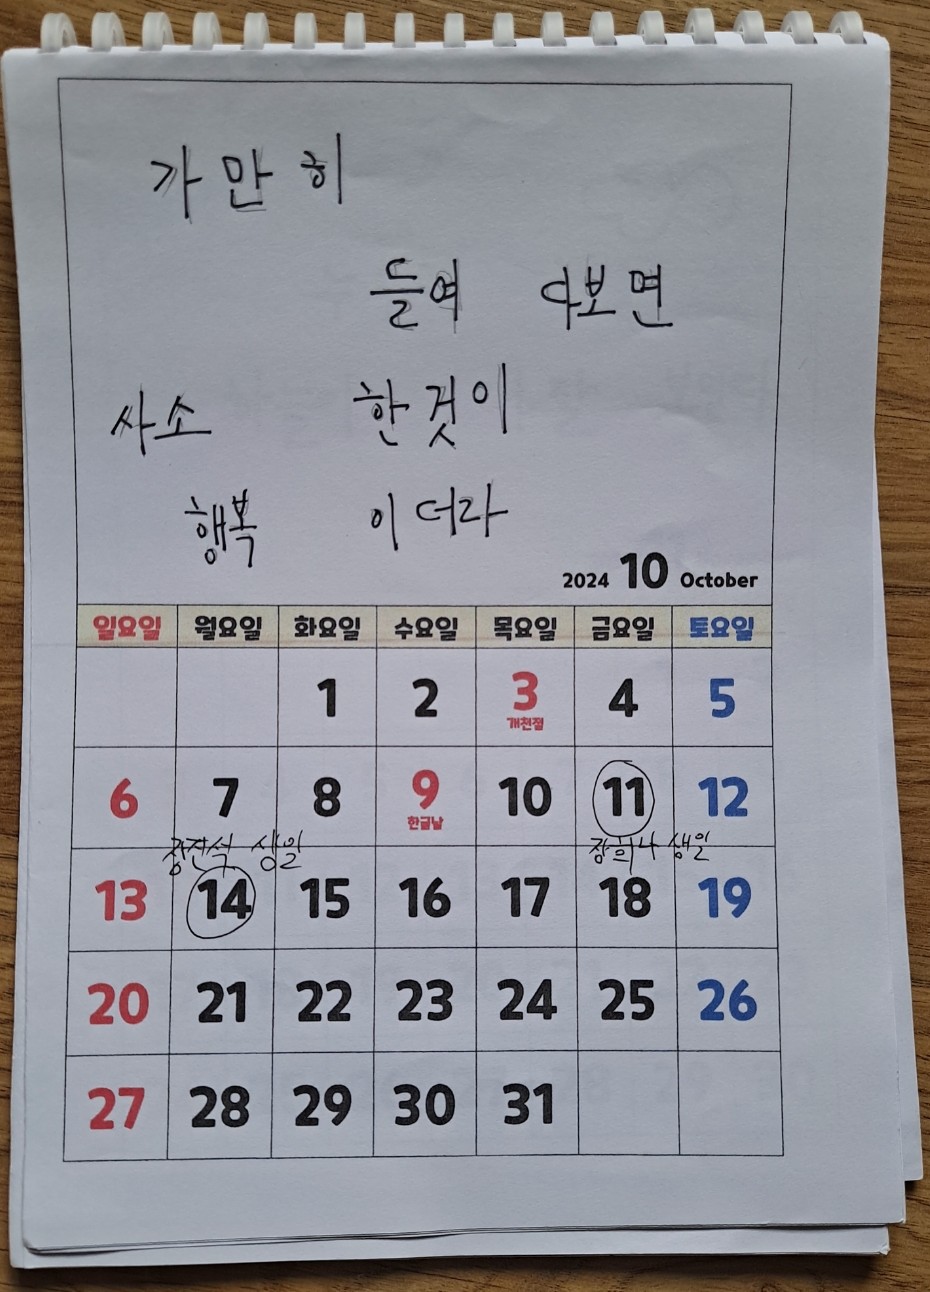 가만히
들여 다보면
사소 한것이
행복 이더라
2024 10 October
일요일 월요일 화요일 수요일 목요일 금요일 토요일
1 2 3 4 5
개천절
6 7 8 9 10 11 12
한글날
장진석 생일 장희나 생일
13 14 15 16 17 18 19
20 21 22 23 24 25 26
27 28 29 30 31